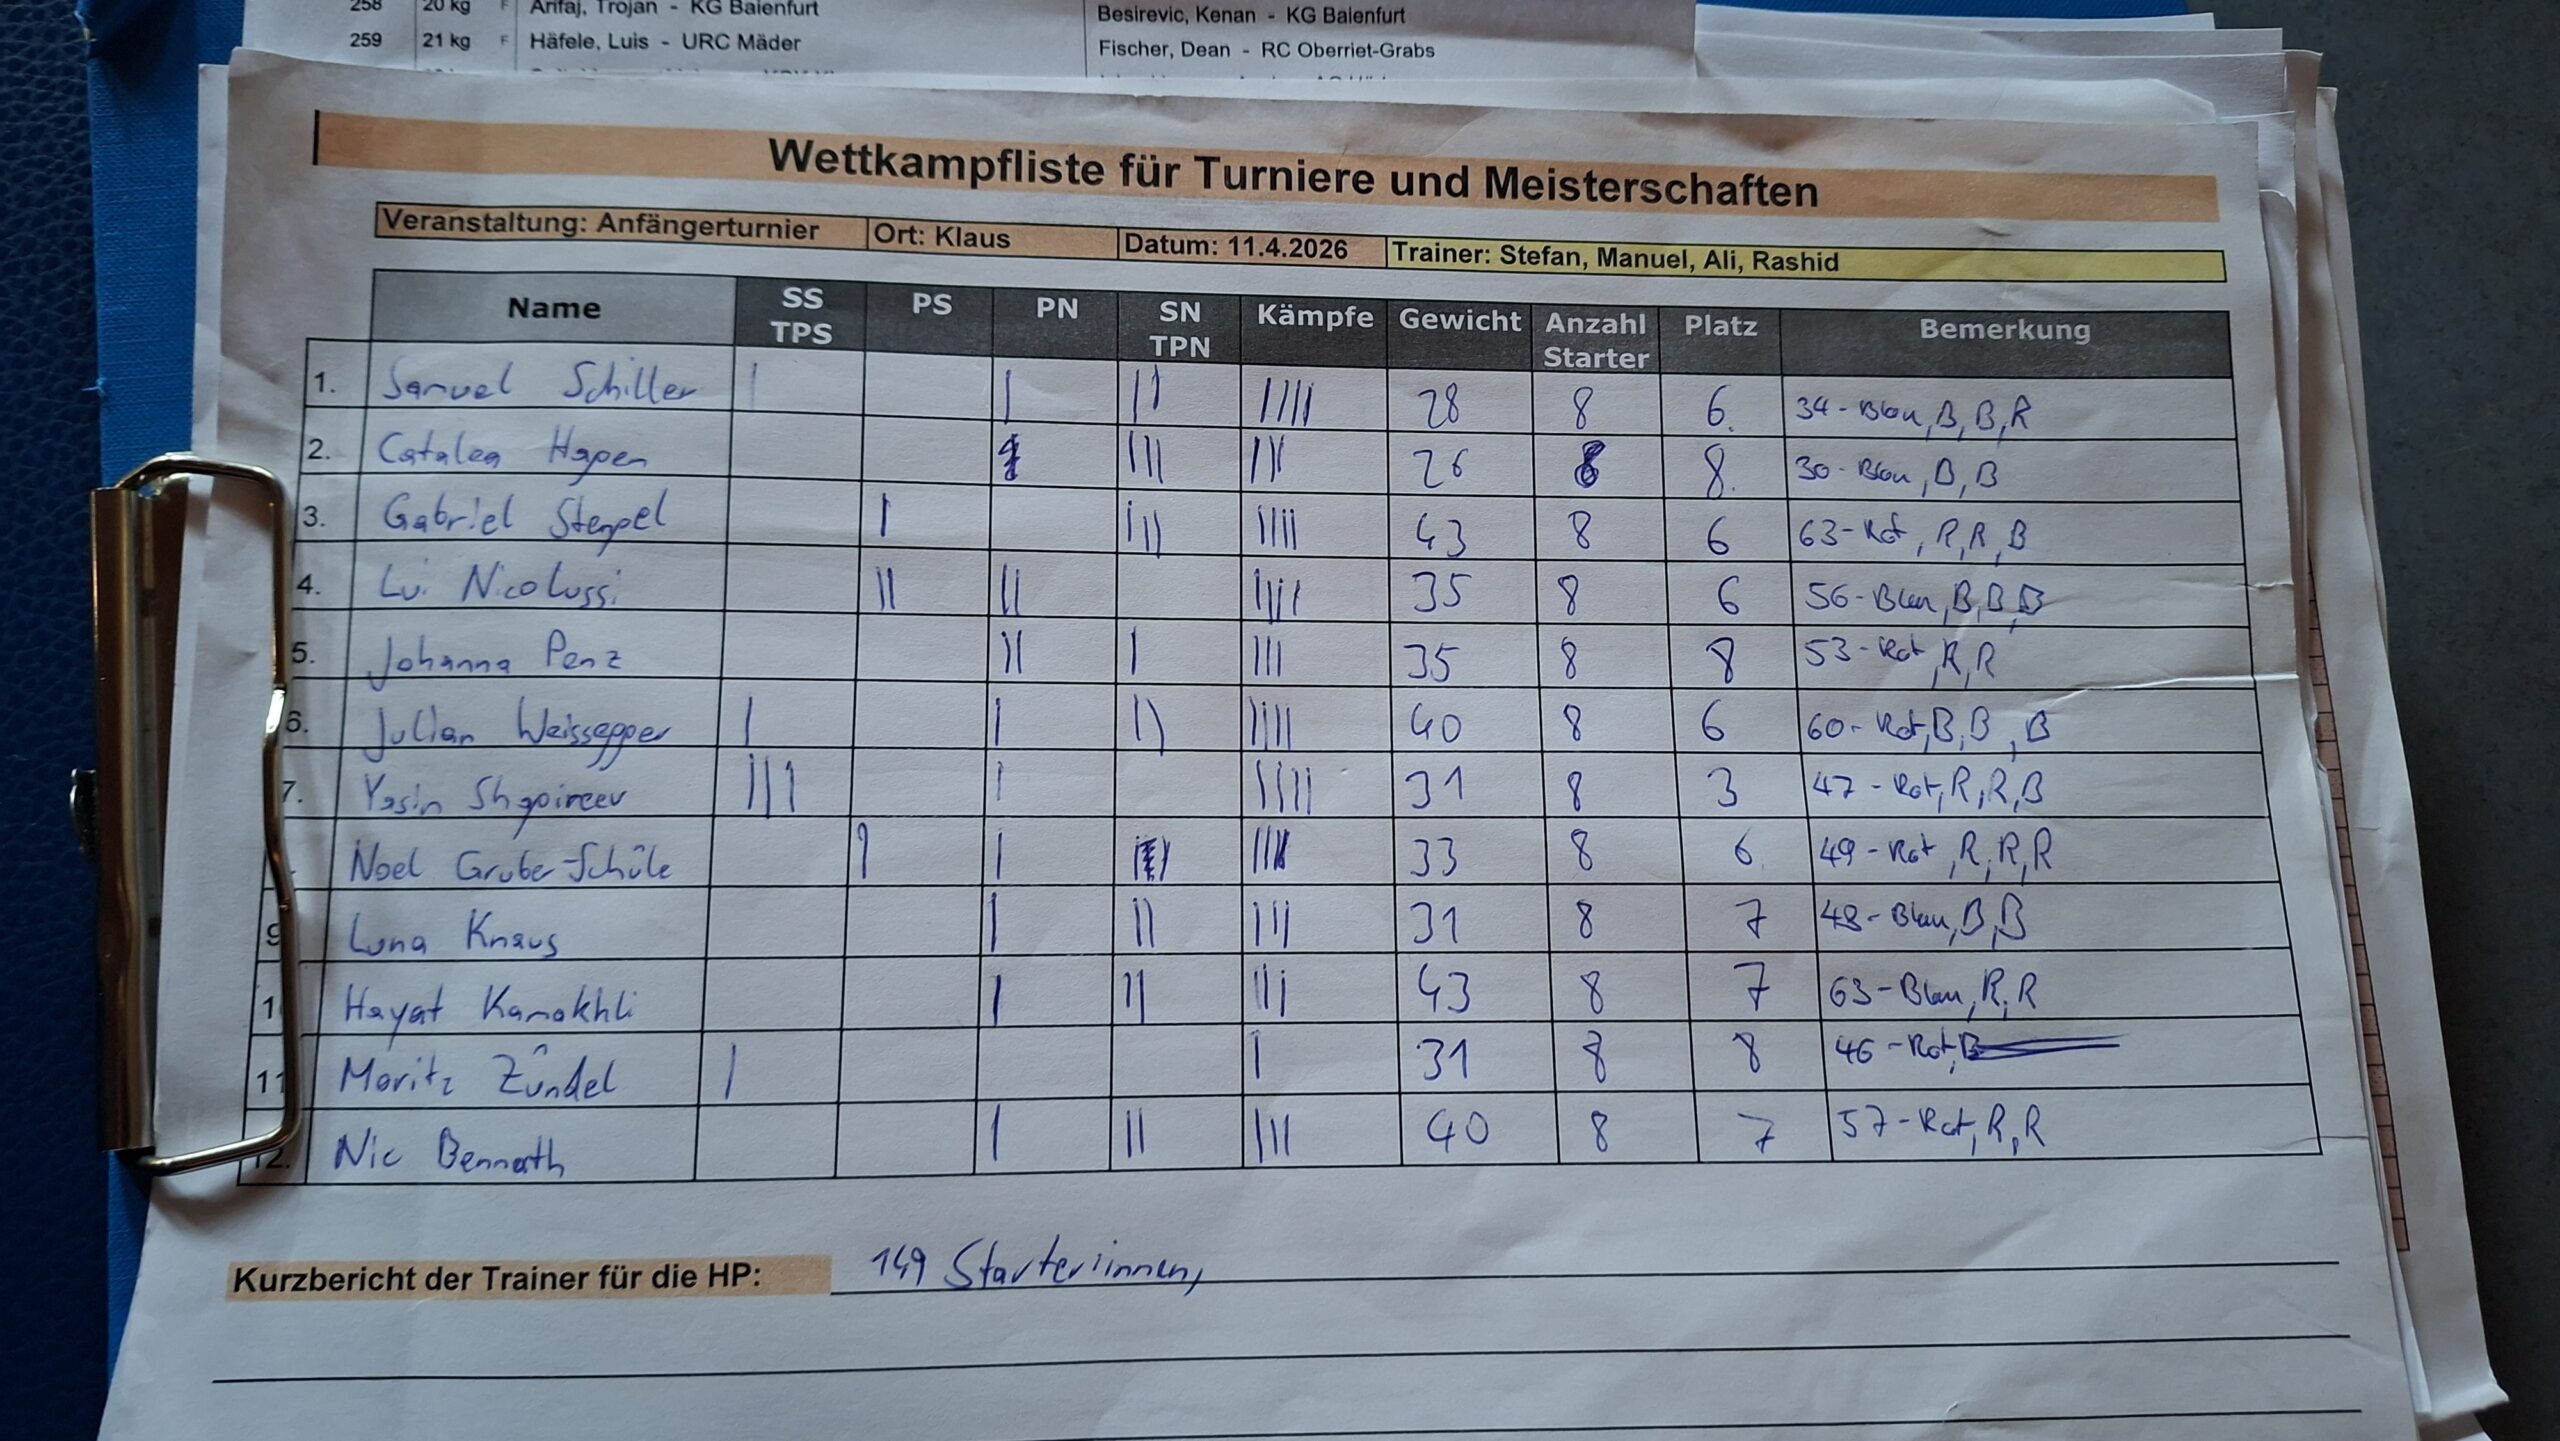 258 20 kg F Arifaj, Trojan - KG Baienfurt Besirevic, Kenan - KG Baienfurt
259 21 kg F Häfele, Luis - URC Mäder Fischer, Dean - RC Oberriet-Grabs
Wettkampfliste für Turniere und Meisterschaften
Veranstaltung: Anfängerturnier Ort: Klaus Datum: 11.4.2026 Trainer: Stefan, Manuel, Ali, Rashid
Name SS TPS PS PN SN TPN Kämpfe Gewicht Anzahl Starter Platz Bemerkung
1. Samuel Schiller | | || |||| 28 8 6. 34-Blau, B, B, R
2. Catalea Hagen ||| ||| 26 8 8. 30-Blau, B, B
3. Gabriel Stempel | ||| |||| 43 8 6 63-Rot, R, R, B
4. Lui Nicolussi || || |||| 35 8 6 56-Blau, B, B, B
5. Johanna Penz || | ||| 35 8 8 53-Rot, R, R
6. Julian Weissegger | | || |||| 40 8 6 60-Rot, B, B, B
7. Yasin ||| | 31 8 3 47-Rot, R, R, B
Noel Gruber-Schüle | | 33 8 6. 49-Rot, R, R, R
9 Luna Knaus | || ||| 31 8 7 48-Blau, B, B
10 Hayat Kamakhli | || ||| 43 8 7 63-Blau, R, R
11 Moritz Zündel | | 31 8 8 46-Rot,
12. Nic Bennath | || ||| 40 8 7 57-Rot, R, R
Kurzbericht der Trainer für die HP: 149 Starter:innen,